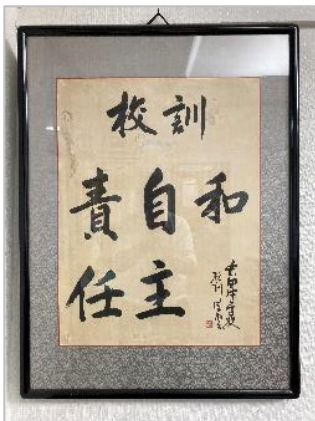 校訓
和
自主
責任